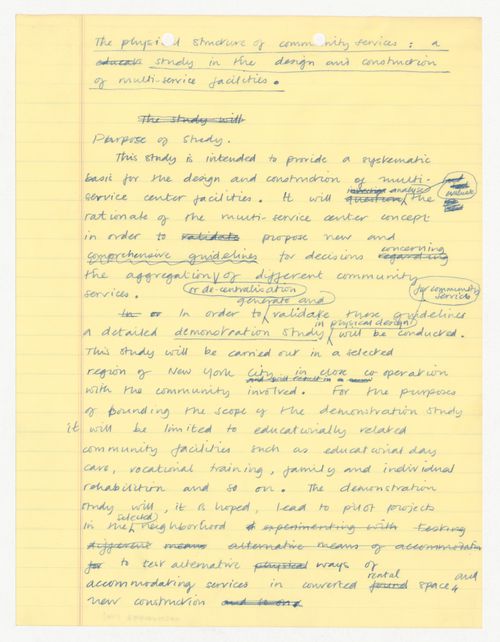 The physical structure of community services : a
study in the design and construction
of multi-service facilities.
The study will
Purpose of study.
This study is intended to provide a systematic
basis for the design and construction of multi-
service center facilities. It will question analyse evaluate the
rationale of the multi-service center concept
in order to validate propose new and
comprehensive guidelines for decisions regarding concerning
the aggregation or de-centralisation of different community
services.
In order to generate and validate these guidelines for community services
a detailed demonstration study in physical design will be conducted.
This study will be carried out in a selected
region of New York City in close co operation
with the community involved. For the purposes
of bounding the scope of the demonstration study
it will be limited to educationally related
community facilities such as educational day
care, vocational training, family and individual
rehabilitation and so on. The demonstration
study will, it is hoped, lead to pilot projects
in the selected neighborhood experimenting with testing
different means alternative means of accommodation
for to test alternative physical ways of
accommodating services in converted rental space, and
new construction and so on.